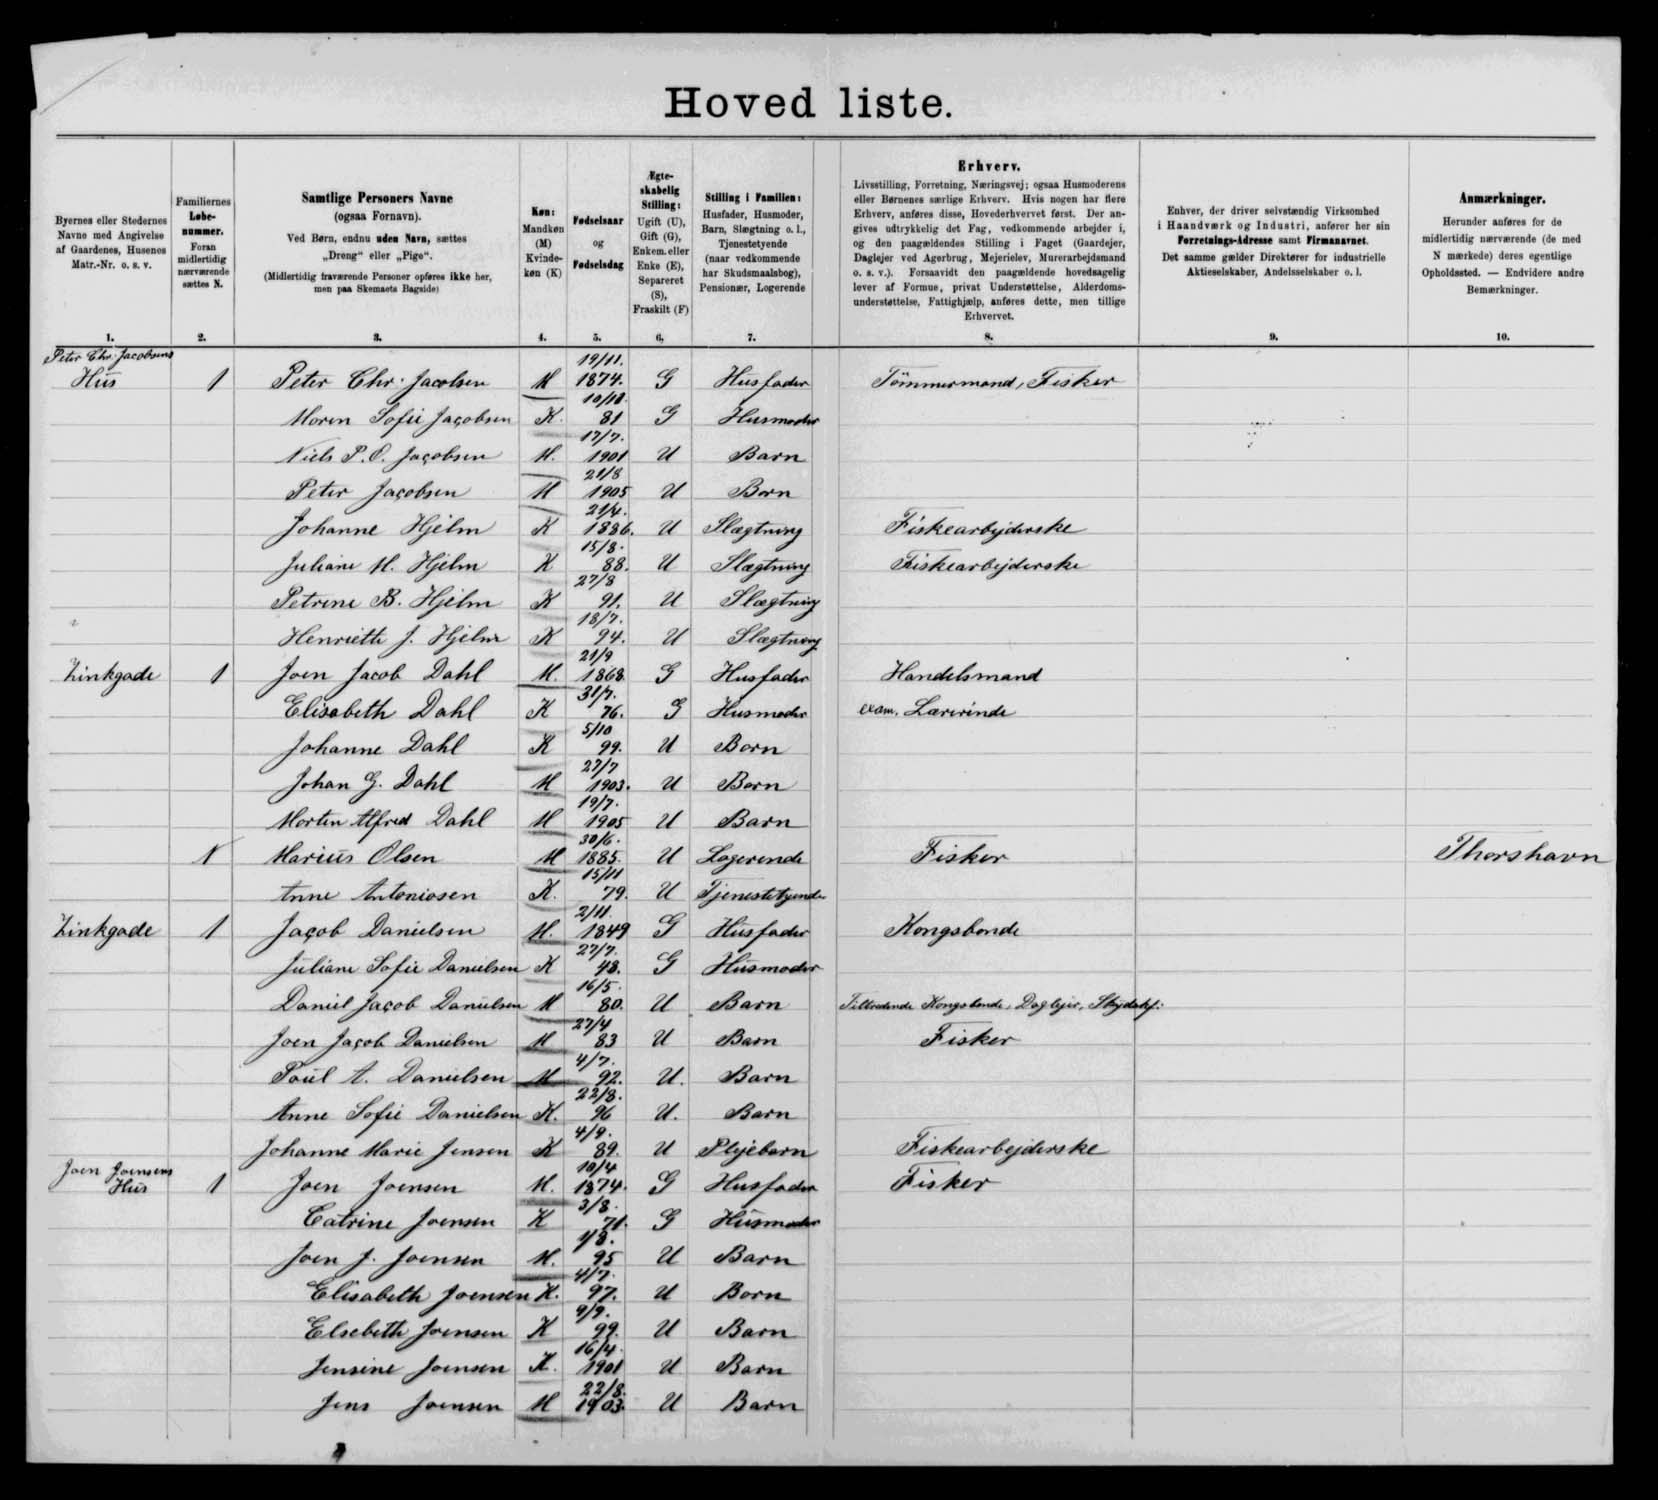 Hoved liste.
Byernes eller Stedernes Navne med Angivelse af Gaardenes, Husenes Matr.-Nr. o. s. v.
Familiernes Løbenummer. Foran midlertidig nærværende sættes N.
Samtlige Personers Navne
(ogsaa Fornavn).
Ved Børn, endnu uden Navn, sættes „Dreng“ eller „Pige“.
(Midlertidig fraværende Personer opføres ikke her, men paa Skemaets Bagside)
Køn: Mandkøn (M) Kvindekøn (K)
Fødselsaar og Fødselsdag
Ægteskabelig Stilling: Ugift (U), Gift (G), Enkem. eller Enke (E), Separeret (S), Fraskilt (F)
Stilling i Familien: Husfader, Husmoder, Barn, Slægtning o. l., Tjenestetyende (naar vedkommende har Skudsmaalsbog), Pensionær, Logerende
Erhverv.
Livsstilling, Forretning, Næringsvej; ogsaa Husmoderens
eller Børnenes særlige Erhverv. Hvis nogen har flere
Erhverv, anføres disse, Hovederhvervet først. Der an-
gives udtrykkelig det Fag, vedkommende arbejder i,
og den paagældendes Stilling i Faget (Gaardejer,
Daglejer ved Agerbrug, Mejerielev, Murerarbejdsmand
o. s. v.). Forsaavidt den paagældende hovedsagelig
lever af Formue, privat Understøttelse, Alderdoms-
understøttelse, Fattighjælp, anføres dette, men tillige
Erhvervet.
Enhver, der driver selvstændig Virksomhed
i Haandværk og Industri, anfører her sin
Forretnings-Adresse samt Firmanavnet.
Det samme gælder Direktører for industrielle
Aktieselskaber, Andelsselskaber o. l.
Anmærkninger.
Herunder anføres for de
midlertidig nærværende (de med
N mærkede) deres egentlige
Opholdssted. — Endvidere andre
Bemærkninger.
1. 2. 3. 4. 5. 6. 7. 8. 9. 10.
Peter Chr. Jacobsens
Hus 1 Peter Chr. Jacobsen M 19/11. 1874. G Husfader Tömmermand, Fisker
Maren Sofie Jacobsen K. 81 G Husmoder
Niels P. O. Jacobsen M. 17/7. 1901 U Barn
Peter Jacobsen M 21/8 1905 U Barn
Johanne Hjelm K 21/4. 1886. U Slægtning Fiskearbejderske
Juliane M. Hjelm K 15/8. 88. U Slægtning Fiskearbejderske
Petrine B. Hjelm K 27/8 91. U Slægtning
Henriette J. Hjelm K 18/7. 94. U Slægtning
Zinkgade 1 Joen Jacob Dahl M. 21/9 1868 G Husfader Handelsmand
Elisabeth Dahl K 31/7. 76. G Husmoder exam. Lærerinde
Johanne Dahl K 5/10 99. U Barn
Johan G. Dahl M 27/7 1903. U Barn
Morten Alfred Dahl M 19/7. 1905 U Barn
N Marius Olsen M 30/6. 1885. U Logerende Fisker Thorshavn
Anne Antoniosen K. 15/11 79. U Tjenestetyende
Zinkgade 1 Jacob Danielsen M. 2/11. 1849 G Husfader Kongsbonde
Juliane Sofie Danielsen K 27/7. 48. G Husmoder
Daniel Jacob Danielsen M 16/5. 80. U Barn Tiltrædende Kongsbonde, Daglejer,
Joen Jacob Danielsen M 27/4 83 U Barn Fisker
Poul A. Danielsen M 4/7. 92. U. Barn
Anne Sofie Danielsen K. 22/8. 96 U. Barn
Johanne Marie Jensen K 4/9. 89. U Plejebarn Fiskearbejderske
Joen Joensens
Hus 1 Joen Joensen M. 10/4 1874. G Husfader Fisker
Catrine Joensen K 3/8. 71. G Husmoder
Joen J. Joensen M. 95 U Barn
Elisabeth Joensen K. 4/7. 97. U Barn
Elsebeth Joensen K 9/9. 99. U Barn
Jensine Joensen K. 16/4. 1901 U Barn
Jens Joensen M 22/8. 1903. U Barn